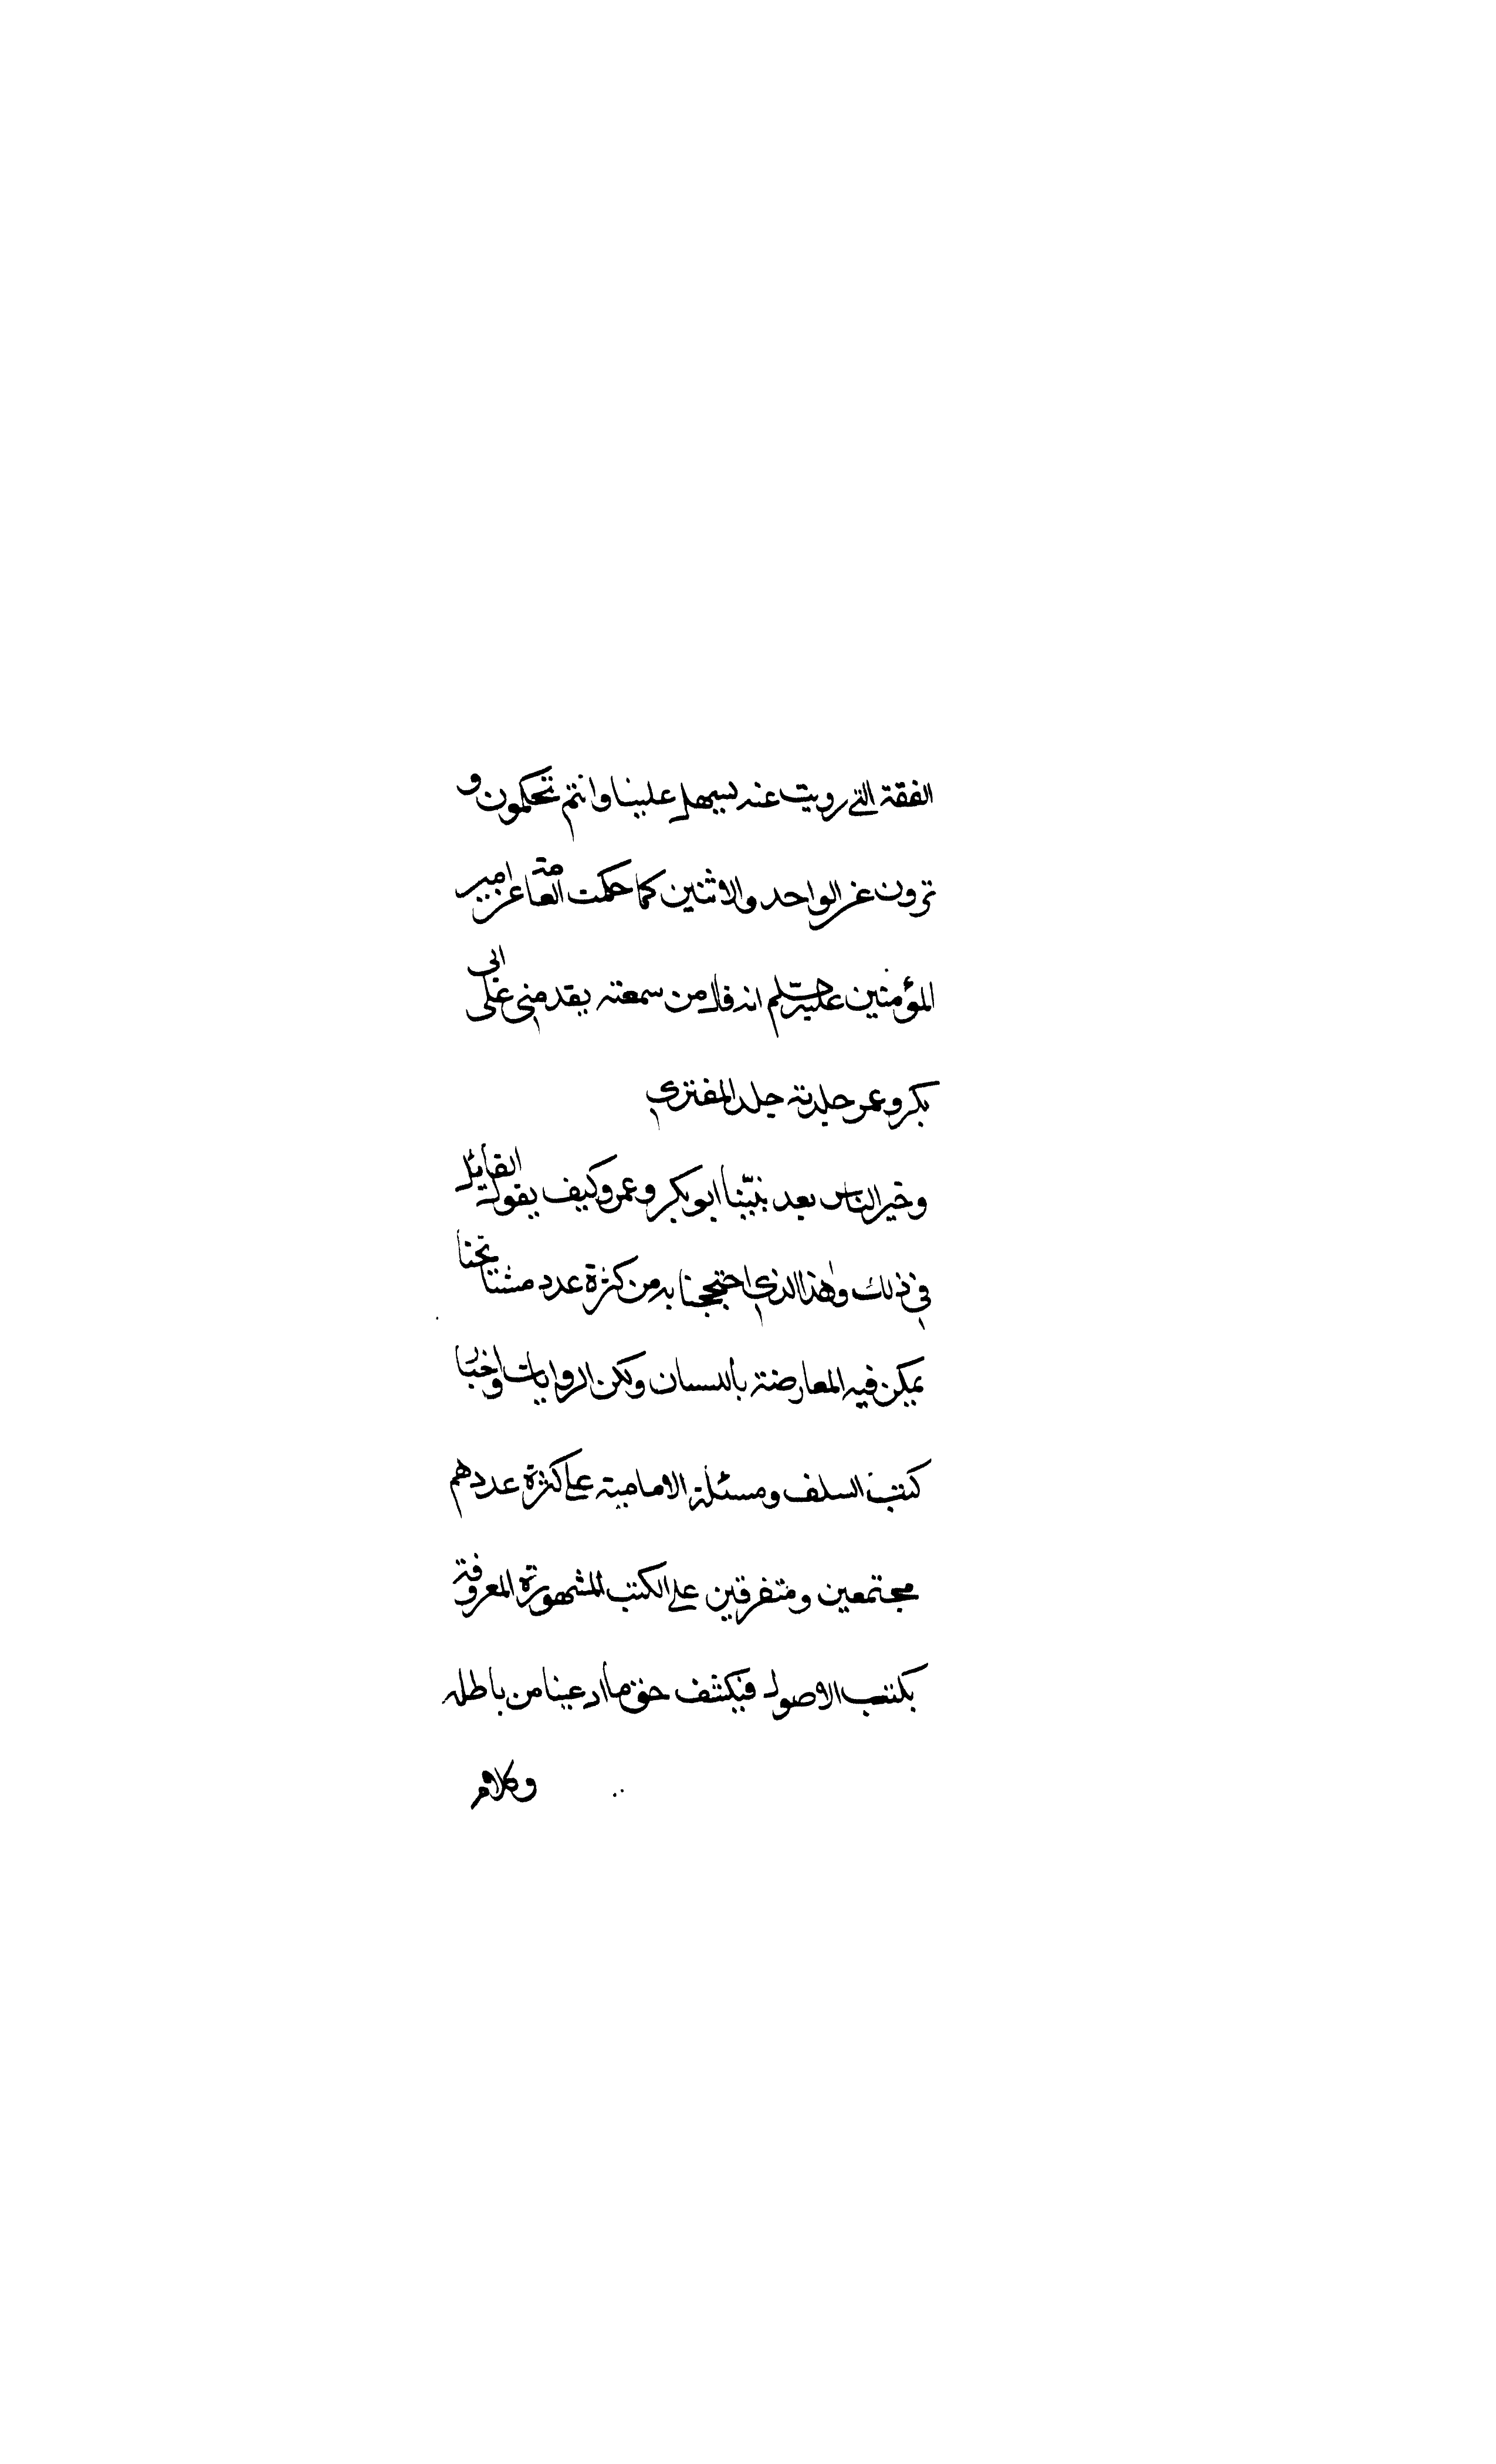 الفقة التي رويت عنه ليسهل علينا وانتم تحكمون و
تروون عن الواحد والاثنين كما حكت العامة عن امير
المؤمنين عليه السلم انه قال من سمعته يقدمني على ابي
بكر وعمر جلدته جلد المفتري
وخير الناس بعد نبيّنا ابو بكر وعمر وكيف يقول القائل
في ذلك وهذا الذي احتججنا به من كثرة عدد مشائخنا
يمكن فيه المعارضة باللسان ولكن الروايات واخبار
كتب السلف ومسئلة الامامية على كثرة عددهم
مجتمعين ومتفرقين على الكتب المشهورة المعروفة
بكتب الاصول فيكشف حق ما ادعينا من باطله
وكلامه